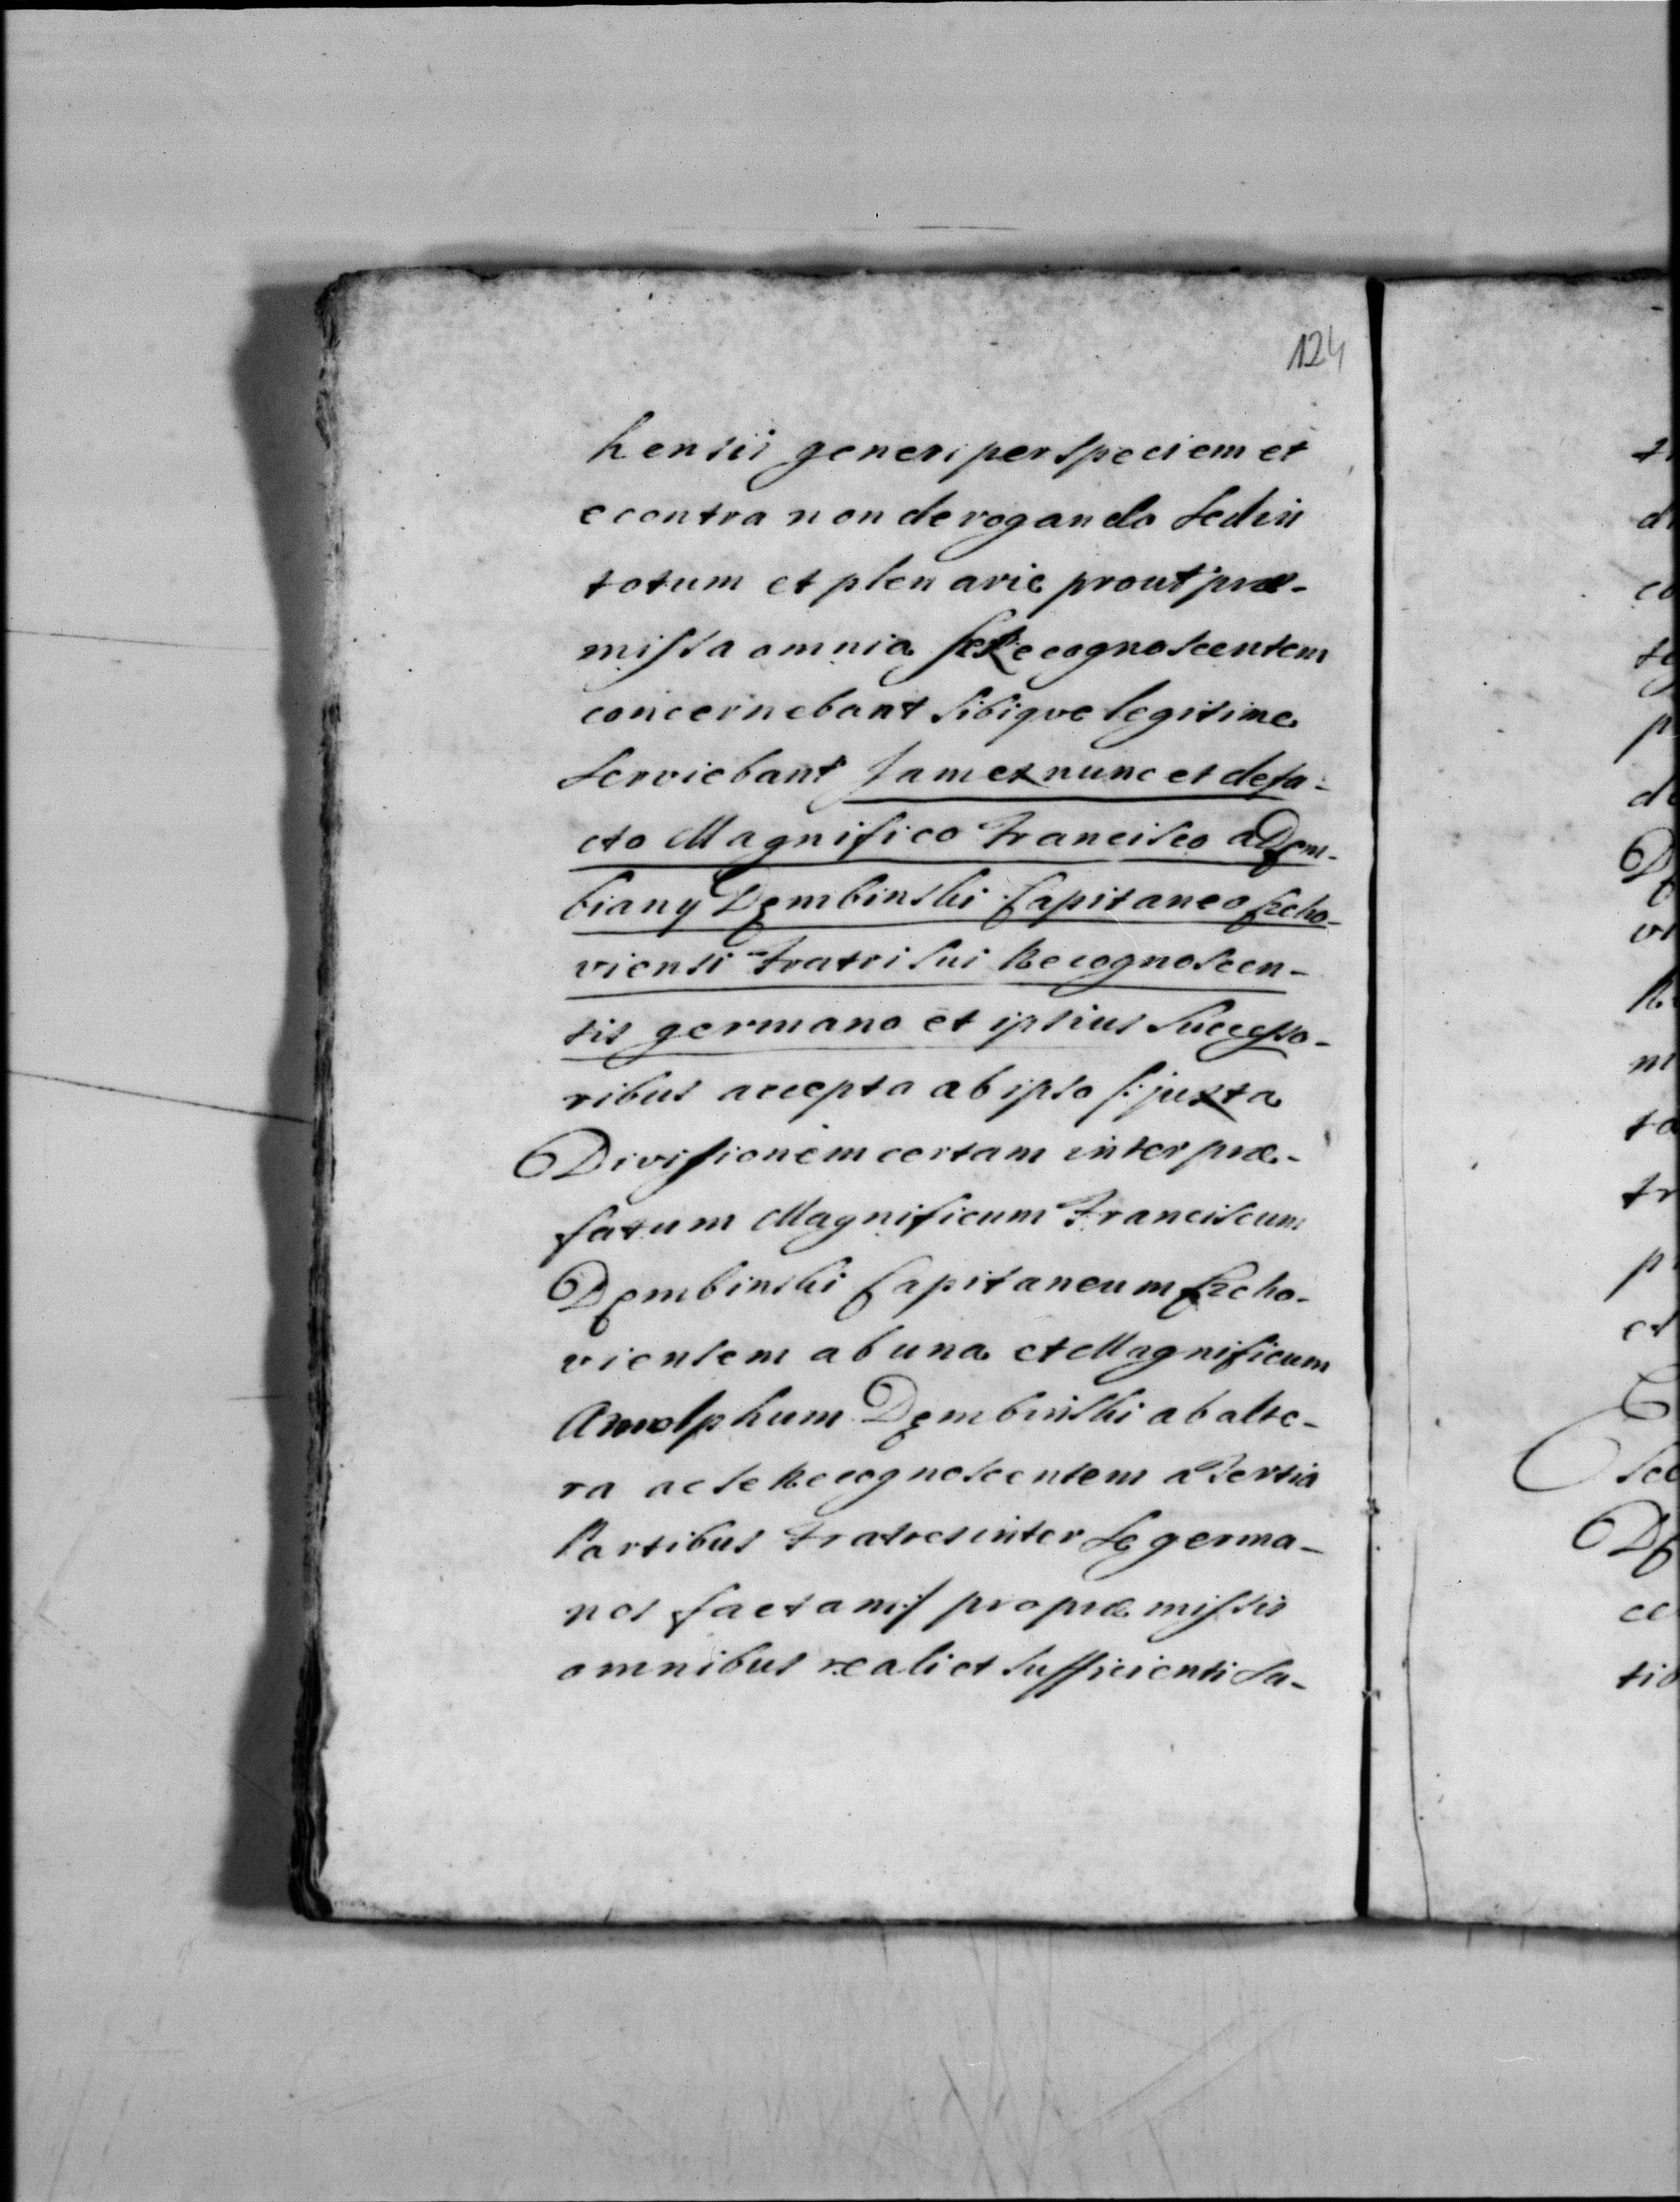 124
hensis generi per speciem et
econtra non derogando sed in
totum et plenarie prout præ-
missa omnia se Recognoscentem
concernebant sibique legitime
serviebant Jam ex nunc et defa-
cto Magnifico Francisco a Dęm-
biany Dęmbinski Capitaneo
viensi Fratri sui Recognoscen-
tis germano et ipsius Successo-
ribus accepta ab ipso /: juxta
Divisionem certam inter præ-
fatum Magnificum Franciscum
Dęmbinski Capitaneum
viensem ab una et Magnificum
Arnolphum Dęmbinski ab alte-
ra ac se Recognoscentem a tertia
Partibus Fratres inter se germa-
nos factam :/ pro præmissis
omnibus reali et sufficienti sa-